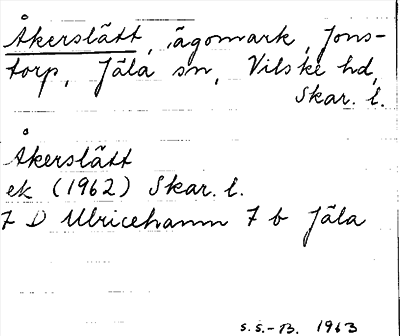 Åkerslätt, ägomark, Jons-
torp, Jäla sn, Vilske hd,
Skar. l.
Åkerslätt
ek (1962) Skar. l.
7 D Ulricehamn 7 b Jäla
S.S.-B. 1963